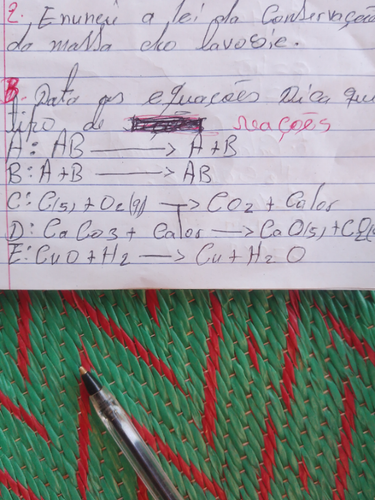 2. Enuncie a lei da Conservação
da massa do lavosie.
3. Data as equações Dica que
tipo de reações
A: AB → A + B
B: A + B → AB
C: C(s) + O2(g) → CO2 + Calor
D: CaCO3 + Calor → CaO(s) + CO2(
E: CuO + H2 → Cu + H2O